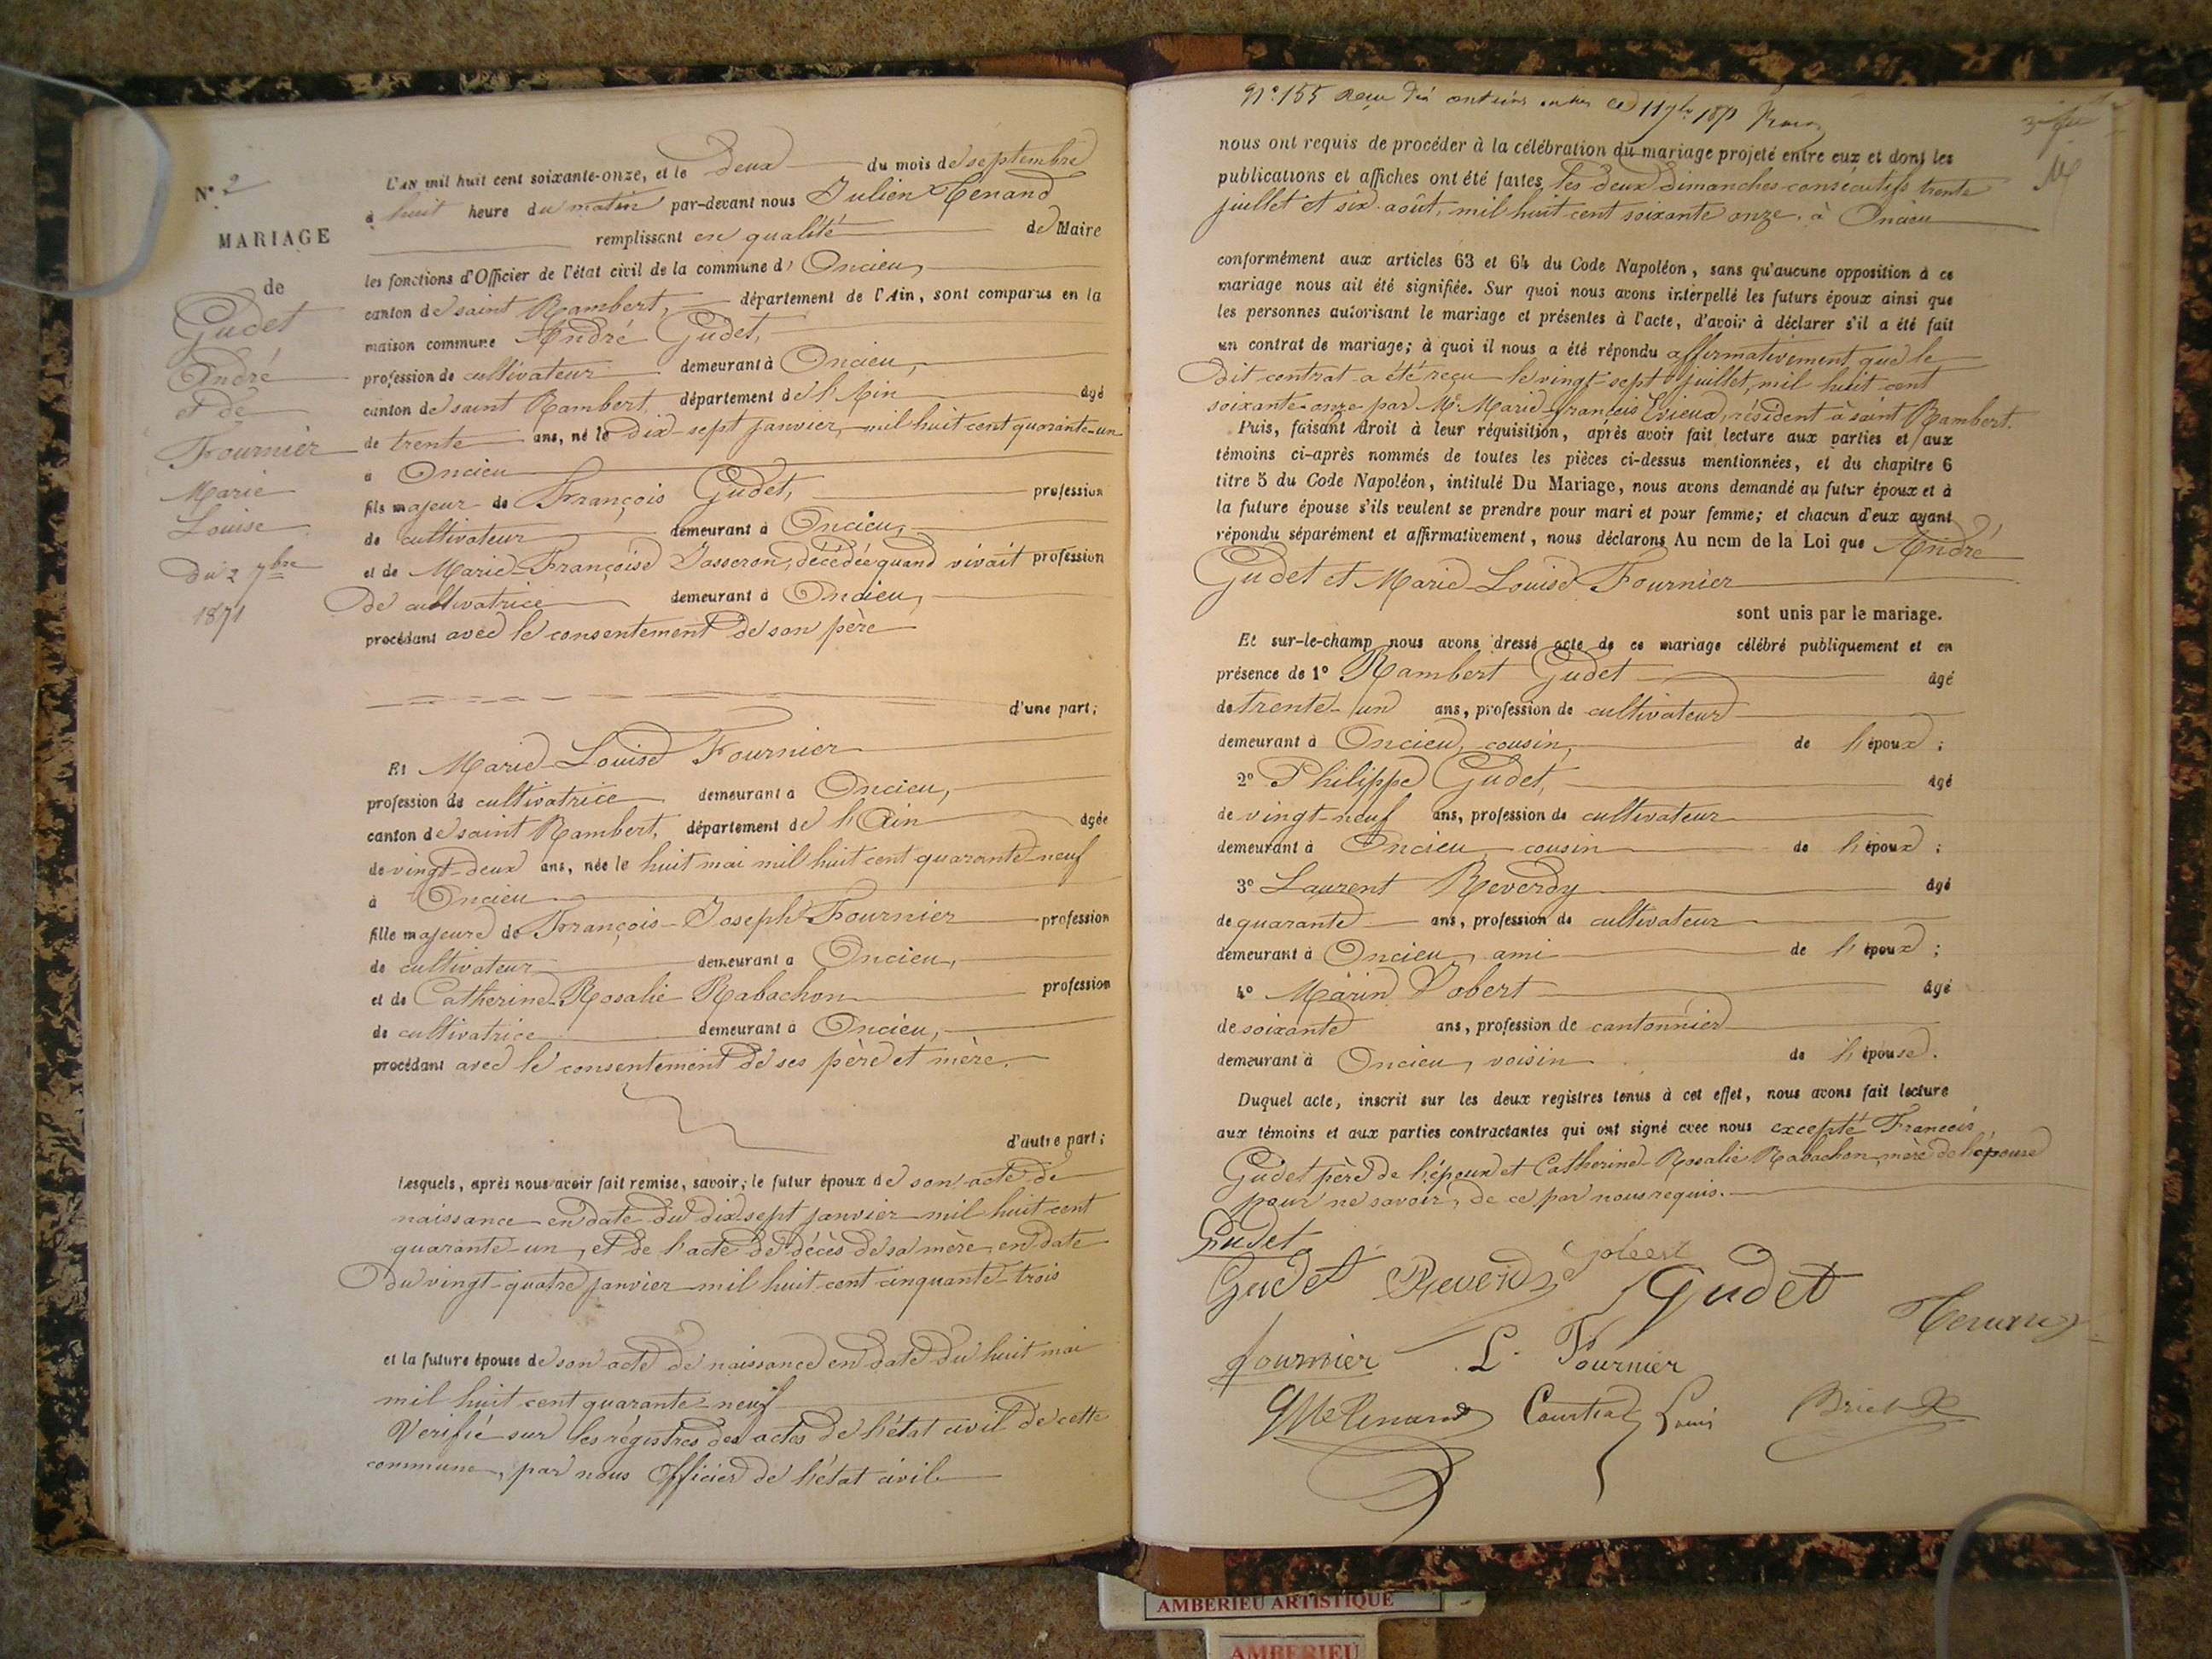 N° 2
MARIAGE
de
Gudet
André
et de
Fournier
Marie
Louise
Du 2 7bre
1871
L'an mil huit cent soixante-onze, et le deux du mois de septembre
à huit heure du matin par-devant nous Julien Tenand
remplissant en qualité de Maire
les fonctions d'Officier de l'état civil de la commune d' Oncieu,
canton de saint Rambert, département de l'Ain, sont comparus en la
maison commune André Gudet,
profession de cultivateur demeurant à Oncieu,
canton de saint Rambert, département de l'Ain âgé
de trente ans, né le dix-sept janvier mil huit cent quarante-un
à Oncieu
fils majeur de François Gudet, profession
de cultivateur demeurant à Oncieu,
et de Marie-Françoise Jasseron, décédée quand vivait profession
de cultivatrice demeurant à Oncieu,
procédant avec le consentement de son père
d'une part;
Et Marie-Louise Fournier
profession de cultivatrice demeurant à Oncieu,
canton de saint Rambert, département de l'Ain âgée
de vingt-deux ans, née le huit mai mil huit cent quarante-neuf
à Oncieu
fille majeure de François-Joseph Fournier profession
de cultivateur demeurant à Oncieu,
et de Catherine-Rosalie Rabachon profession
de cultivatrice demeurant à Oncieu,
procédant avec le consentement de ses père et mère.
d'autre part;
Lesquels, après nous avoir fait remise, savoir; le futur époux de son acte de
naissance en date du dix-sept janvier mil huit cent
quarante-un, et de l'acte de décès de sa mère, en date
du vingt-quatre janvier mil huit cent cinquante-trois
et la future épouse de son acte de naissance en date du huit mai
mil huit cent quarante-neuf
Vérifié sur les régistres des actes de l'état civil de cette
commune, par nous Officier de l'état civil
N° 155
nous ont requis de procéder à la célébration du mariage projeté entre eux et dont les
publications et affiches ont été faites les deux dimanches consécutifs trente
juillet et six août, mil huit cent soixante onze, à Oncieu
conformément aux articles 63 et 64 du Code Napoléon, sans qu'aucune opposition à ce
mariage nous ait été signifiée. Sur quoi nous avons interpellé les futurs époux ainsi que
les personnes autorisant le mariage et présentes à l'acte, d'avoir à déclarer s'il a été fait
un contrat de mariage; à quoi il nous a été répondu affirmativement que le
dit contrat a été reçu le vingt-sept juillet, mil huit cent
soixante-onze par Me Marie-François résident à saint Rambert.
Puis, faisant droit à leur réquisition, après avoir fait lecture aux parties et aux
témoins ci-après nommés de toutes les pièces ci-dessus mentionnées, et du chapitre 6
titre 5 du Code Napoléon, intitulé Du Mariage, nous avons demandé au futur époux et à
la future épouse s'ils veulent se prendre pour mari et pour femme; et chacun d'eux ayant
répondu séparément et affirmativement, nous déclarons Au nom de la Loi que André
Gudet et Marie-Louise Fournier
sont unis par le mariage.
Et sur-le-champ nous avons dressé acte de ce mariage célébré publiquement et en
présence de 1° Rambert Gudet âgé
de trente-un ans, profession de cultivateur
demeurant à Oncieu, cousin, de l'époux;
2° Philippe Gudet, âgé
de vingt-neuf ans, profession de cultivateur
demeurant à Oncieu cousin de l'époux;
3° Laurent Reverdy âgé
de quarante ans, profession de cultivateur
demeurant à Oncieu, ami de l'époux;
4° Marin Jobert âgé
de soixante ans, profession de cantonnier
demeurant à Oncieu, voisin de l'épouse.
Duquel acte, inscrit sur les deux registres tenus à cet effet, nous avons fait lecture
aux témoins et aux parties contractantes qui ont signé avec nous excepté François
Gudet père de l'époux et Catherine-Rosalie Rabachon mère de l'épouse
pour ne savoir, de ce par nous requis.
Gudet
Gudet Reverdy Gudet
Tenand
fournier L. Fournier
Courtial Louis
AMBERIEU ARTISTIQUE
AMBERIEU